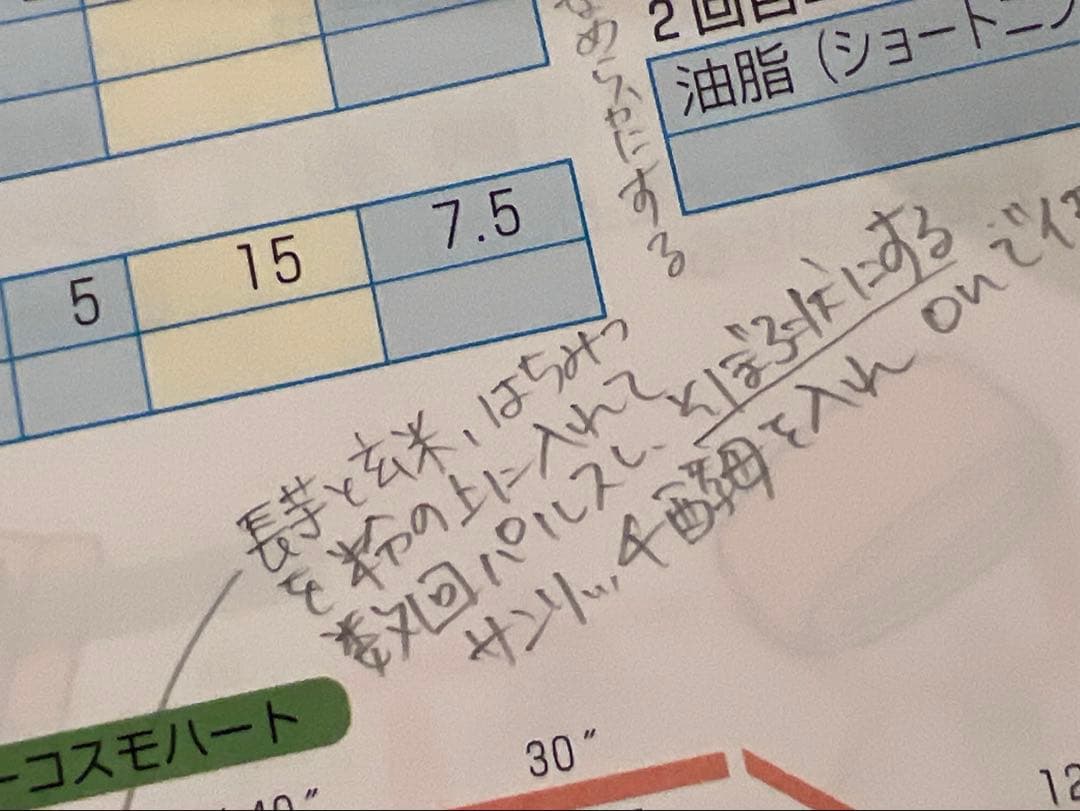 なめらかにする
2回目
油脂（ショートニン
5 15 7.5
長芋と玄米、はちみつ
を粉の上に入れて
数回パルスし、そぼろ状にする
サンリ… 4 酵母を入れ on で
ーコスモハート
30″
40″
12